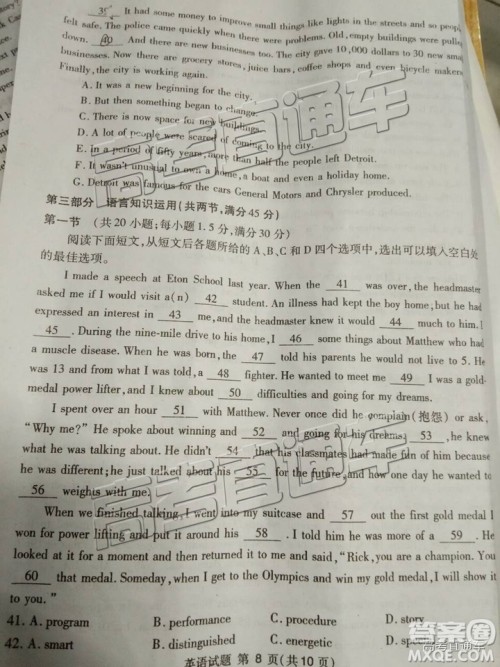 39. It had some money to improve small things like lights in the streets and so peopl
felt safe. The police came quickly when there were problems. Old, empty buildings were pulle
down. 40 And there are new businesses too. The city gave 10,000 dollars to 30 new sma
businesses. Now there are grocery stores, juice bars, coffee shops and even bicycle makers
Finally, the city is working again.
A. It was a new beginning for the city.
B. But then something began to change.
C. There is now space for new buildings.
D. A lot of people were scared of coming to the city.
E. in a period of fifty years, more than half the people left Detroit.
F. It wasn't unusual to own a home, a boat and even a holiday home.
G. Detroit was famous for the cars General Motors and Chrysler produced.
第三部分 语言知识运用(共两节,满分45分)
第一节 (共20小题;每小题1.5分,满分30分)
阅读下面短文,从短文后各题所给的A、B、C和D四个选项中,选出可以填入空白处
的最佳选项。
I made a speech at Eton School last year. When the 41 was over, the headmaster
asked me if I would visit a(n) 42 student. An illness had kept the boy home; but he had
expressed an interest in 43 me, and the headmaster knew it would 44 much to him. I
45 . During the nine-mile drive to his home, I 46 some things about Matthew who had
a muscle disease. When he was born, the 47 told his parents he would not live to 5. He
was 13 and from what I was told, a 48 fighter. He wanted to meet me 49 I was a gold-
medal power lifter, and I knew about 50 difficulties and going for my dreams.
I spent over an hour 51 with Matthew. Never once did he complain(抱怨) or ask,
"Why me?" He spoke about winning and 52 and going for his dreams; 53 , he knew
what he was talking about. He didn't 54 that his classmates had made fun of him because
he was different; he just talked about his 55 for the future, and how one day he wanted to
56 weighs with me.
When we finished talking, I went into my suitcase and 57 out the first gold medal I
won for power lifting and put it around his 58 . I told him he was more of a 59 . He
looked at it for a moment and then returned it to me and said, "Rick, you are a champion. You
60 that medal. Someday, when I get to the Olympics and win my gold medal, I will show it
to you."
41. A. program B. performance C. procedure D. story
42. A. smart B. distinguished C. energetic D. special
英语试题 第8页(共10页)
高考直通车
高考直通车
高考直通车
答案圈
MXQE.COM